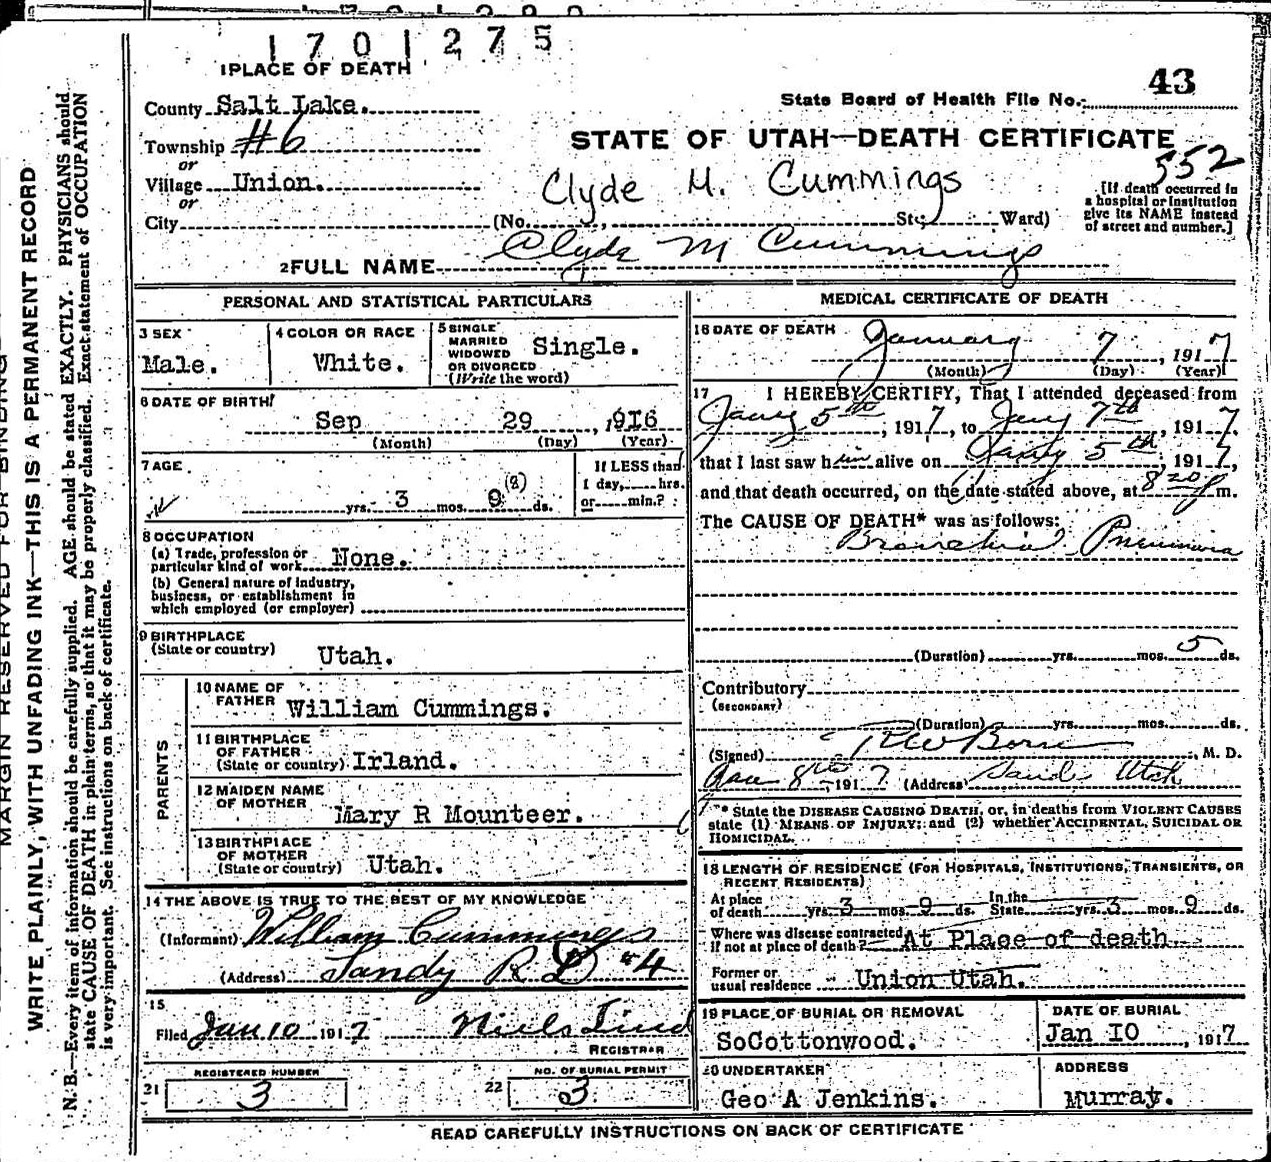 1701275
1 PLACE OF DEATH
43
County Salt Lake.
State Board of Health File No.
Township #6
STATE OF UTAH—DEATH CERTIFICATE
552
or
Village Union.
Clyde M. Cummings
[If death occurred in
a hospital or institution
give its NAME instead
of street and number.]
or
City (No. , St.; Ward)
2 FULL NAME Clyde M Cummings
PERSONAL AND STATISTICAL PARTICULARS
3 SEX
Male.
4 COLOR OR RACE
White.
5 SINGLE
MARRIED
WIDOWED
OR DIVORCED
(Write the word)
Single.
6 DATE OF BIRTH
Sep 29 , 1916
(Month) (Day) (Year)
7 AGE
yrs. 3 mos. 9 (8) ds.
If LESS than
1 day, hrs.
or min.?
8 OCCUPATION
(a) Trade, profession or
particular kind of work None.
(b) General nature of industry,
business, or establishment in
which employed (or employer)
9 BIRTHPLACE
(State or country) Utah.
PARENTS
10 NAME OF
FATHER William Cummings.
11 BIRTHPLACE
OF FATHER
(State or country) Irland.
12 MAIDEN NAME
OF MOTHER
Mary R Mounteer.
13 BIRTHPLACE
OF MOTHER
(State or country) Utah.
14 THE ABOVE IS TRUE TO THE BEST OF MY KNOWLEDGE
(Informant) William Cummings
(Address) Sandy R D #4
15
Filed Jan 10 1917 Niels Lind
REGISTRAR
REGISTERED NUMBER
21 3
NO. OF BURIAL PERMIT
22 3
MEDICAL CERTIFICATE OF DEATH
16 DATE OF DEATH
January 7 , 1917
(Month) (Day) (Year)
17 I HEREBY CERTIFY, That I attended deceased from
Jany 5th , 1917, to Jany 7th , 1917,
that I last saw him alive on Jany 5th , 1917,
and that death occurred, on the date stated above, at 8 20 p m.
The CAUSE OF DEATH* was as follows:
Bronchial Pneumonia
(Duration) yrs. mos. 5 ds.
Contributory
(SECONDARY)
(Duration) yrs. mos. ds.
(Signed) , M. D.
Jan 8th , 1917 (Address) Sandy Utah
* State the DISEASE CAUSING DEATH, or, in deaths from VIOLENT CAUSES
state (1) MEANS OF INJURY; and (2) whether ACCIDENTAL, SUICIDAL OR
HOMICIDAL.
18 LENGTH OF RESIDENCE (FOR HOSPITALS, INSTITUTIONS, TRANSIENTS, OR
RECENT RESIDENTS)
At place
of death yrs. 3 mos. 9 ds.
In the
State yrs. 3 mos. 9 ds.
Where was disease contracted
if not at place of death? At Place of death
Former or
usual residence Union Utah.
19 PLACE OF BURIAL OR REMOVAL
SoCottonwood.
DATE OF BURIAL
Jan 10 , 1917
20 UNDERTAKER
Geo A Jenkins.
ADDRESS
Murray.
READ CAREFULLY INSTRUCTIONS ON BACK OF CERTIFICATE
MARGIN RESERVED FOR BINDING
WRITE PLAINLY, WITH UNFADING INK—THIS IS A PERMANENT RECORD
N. B.—Every item of information should be carefully supplied. AGE should be stated EXACTLY. PHYSICIANS should
state CAUSE OF DEATH in plain terms, so that it may be properly classified. Exact statement of OCCUPATION
is very important. See instructions on back of certificate.